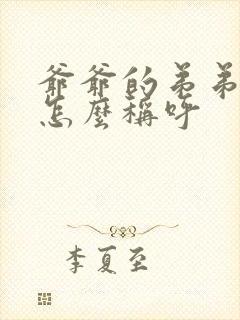 爺爺的弟弟
怎麼稱呼
李夏至